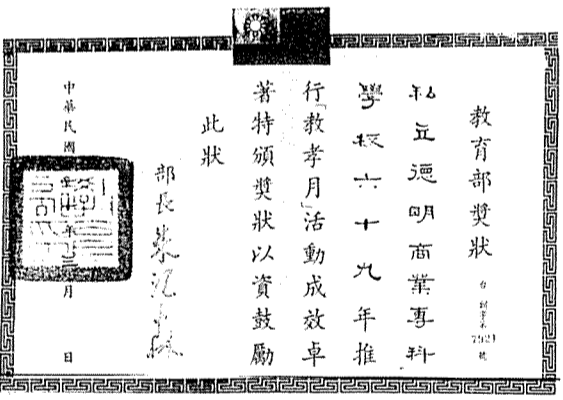 教育部獎狀
台 第 7921 號
私立德明商業專科
學校六十九年推
行「教孝月」活動成效卓
著特頒獎狀以資鼓勵
此狀
部長朱滙森
中華民國 年 月 日